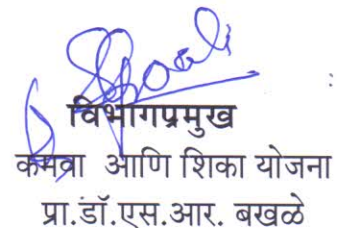 विभागप्रमुख
कमवा आणि शिका योजना
प्रा.डॉ.एस.आर. बखळे